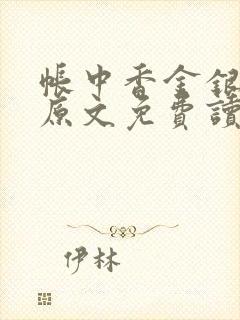 帳中香金銀
原文免費讀
伊林